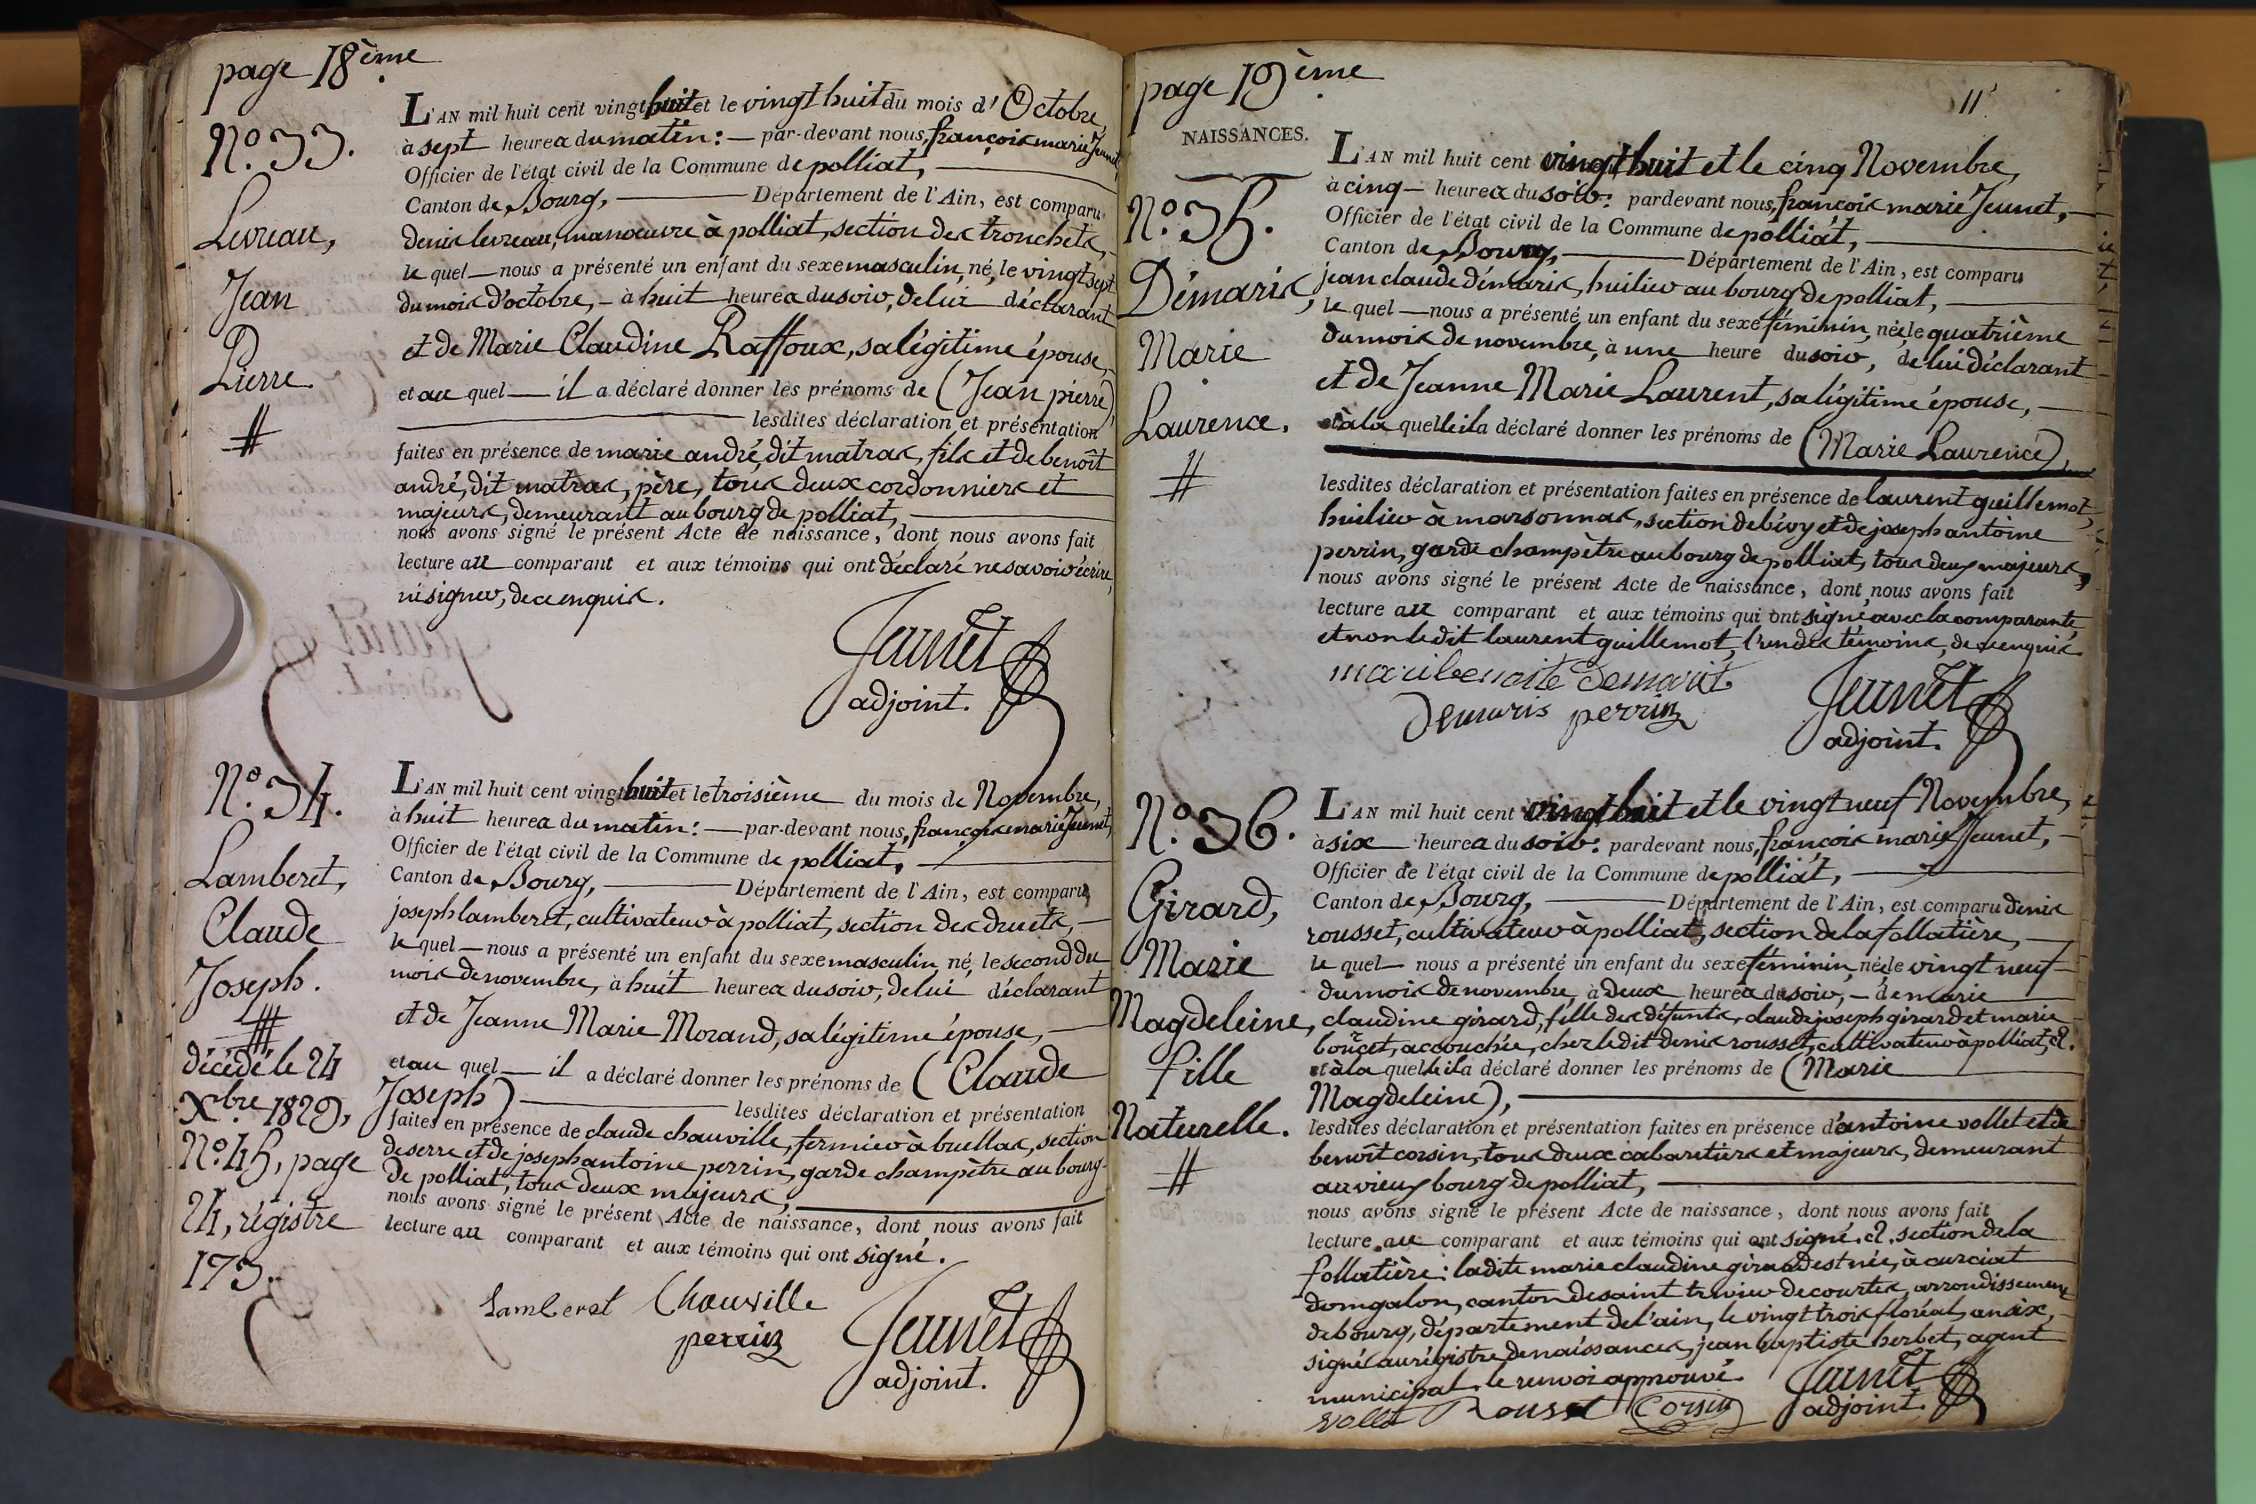 page 18ème
N.º 33.
Levreau,
Jean
Pierre.
L'AN mil huit cent vingt huit et le vingt huit du mois d'Octobre,
à sept heures du matin : — par-devant nous, françois marie Jeunet,
Officier de l'état civil de la Commune de polliat,
Canton de Bourg, — Département de l'Ain, est comparu
denis levreau, manœuvre à polliat, section des tronchets,
le quel — nous a présenté un enfant du sexe masculin, né, le vingt sept
du mois d'octobre, — à huit heures du soir, de lui déclarant
et de Marie Claudine Raffoux, sa légitime épouse,
et au quel — il a déclaré donner les prénoms de (Jean pierre),
lesdites déclaration et présentation
faites en présence de marie andré, dit matras, fils et de benoît
andré, dit matras, père, tous deux cordonniers et
majeurs, demeurant au bourg de polliat,
nous avons signé le présent Acte de naissance, dont nous avons fait
lecture au comparant et aux témoins qui ont déclaré ne savoir écrire,
ni signer, de ce enquis.
Jeunet
adjoint.
N.º 34.
Lamberet,
Claude
Joseph.
décédé le 24
Xbre. 1829,
N.º 45, page
24, régistre
173.
L'AN mil huit cent vingt huit et le troisième du mois de Novembre,
à huit heures du matin : — par-devant nous, françois marie Jeunet,
Officier de l'état civil de la Commune de polliat,
Canton de Bourg, — Département de l'Ain, est comparu
joseph lamberet, cultivateur à polliat, section des druets, —
le quel — nous a présenté un enfant du sexe masculin, né, le second du
mois de novembre, à huit heures du soir, de lui déclarant
et de Jeanne Marie Morand, sa légitime épouse, —
et au quel — il a déclaré donner les prénoms de (Claude
Joseph) — lesdites déclaration et présentation
faites en présence de claude chauville, fermier à buellas, section
de serre et de joseph antoine perrin, garde champêtre au bourg
de polliat, tous deux majeurs,
nous avons signé le présent Acte de naissance, dont nous avons fait
lecture au comparant et aux témoins qui ont signé.
Lamberet Chauville
perrin
Jeunet
adjoint.
page 19ème
11
NAISSANCES.
N.º 35.
Démaris,
Marie
Laurence.
L'AN mil huit cent vingt huit et le cinq Novembre,
à cinq — heures du soir : pardevant nous, françois marie Jeunet, —
Officier de l'état civil de la Commune de polliat,
Canton de Bourg, — Département de l'Ain, est comparu
jean claude démaris, huilier au bourg de polliat,
le quel — nous a présenté un enfant du sexe féminin, née le quatrième
du mois de novembre, à une heure du soir, de lui déclarant
et de Jeanne Marie Laurent, sa légitime épouse, —
et à la quelle il a déclaré donner les prénoms de (Marie Laurence),
lesdites déclaration et présentation faites en présence de laurent guillemot,
huilier à marsonnas, section de bévy et de joseph antoine
perrin, garde champêtre au bourg de polliat, tous deux majeurs,
nous avons signé le présent Acte de naissance, dont nous avons fait
lecture au comparant et aux témoins qui ont signé avec la comparante
et non le dit laurent guillemot, l'un des témoins, de ce enquis.
marie benoite demaris
Demaris perrin
Jeunet
adjoint.
N.º 36.
Girard,
Marie
Magdeleine,
fille
Naturelle.
L'AN mil huit cent vingt huit et le vingt neuf Novembre,
à six heures du soir : pardevant nous, françois marie Jeunet, —
Officier de l'état civil de la Commune de polliat,
Canton de Bourg, — Département de l'Ain, est comparu denis
rousset, cultivateur à polliat, section de la follatière, —
le quel nous a présenté un enfant du sexe féminin, née le vingt neuf
du mois de novembre, à deux heures du soir, — de marie
claudine girard, fille des défunts, claude joseph girard et marie
bouçet, accouchée, chez le dit denis rousset, cultivateur à polliat,
et à la quelle il a déclaré donner les prénoms de (Marie
Magdeleine),
lesdites déclaration et présentation faites en présence d'antoine vollet et de
benoît corsin, tous deux cabaretiers et majeurs, demeurant
au vieux bourg de polliat,
nous avons signé le présent Acte de naissance, dont nous avons fait
lecture au comparant et aux témoins qui ont signé. section de la
follatière : la dite marie claudine girard est née, à curciat
dongalon, canton de saint trivier de courtes, arrondissement
de bourg, département de l'ain, le vingt trois floréal, an six, —
signé au régistre de naissances, jean baptiste herbet, agent
municipal. le renvoi approuvé.
vollet Rousset Corsin
Jeunet
adjoint.